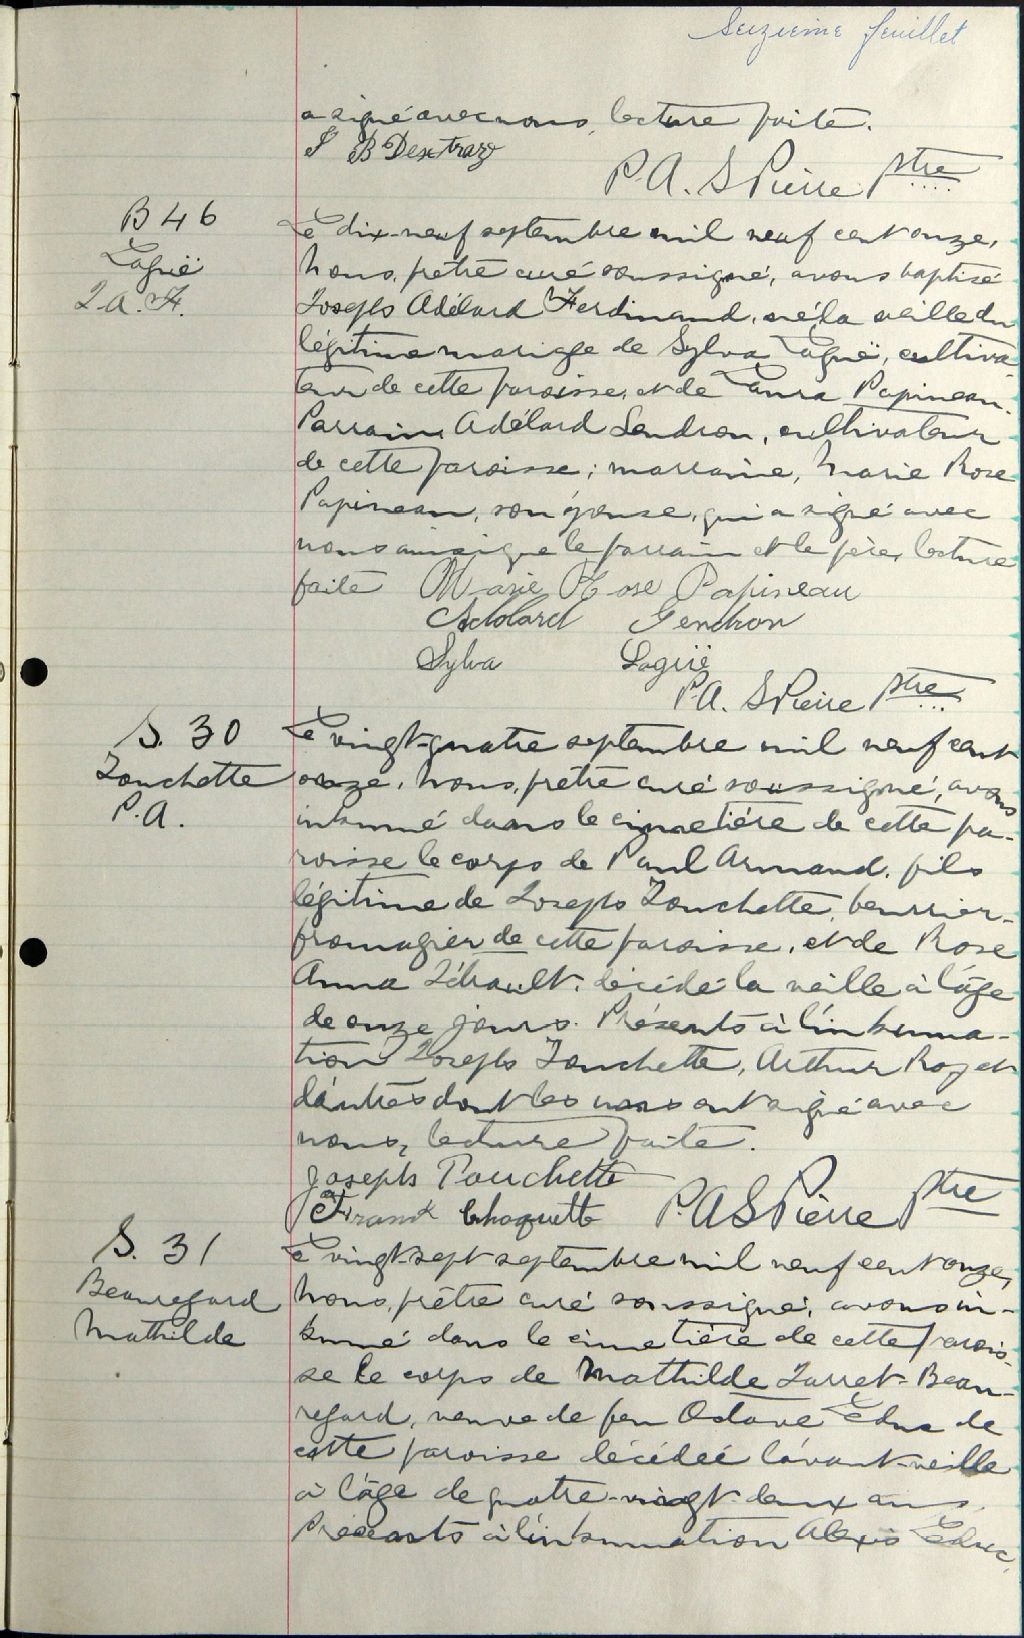 Seizieme feuillet
a signé avec nous, lecture faite.
J B Dextraz
P.A. S Pierre ptre
B 46
Laguë
J. A. F.
Le dix-neuf septembre mil neuf cent onze,
Nous, prêtre curé soussigné, avons baptisé
Joseph Adélard Ferdinand, né la veille du
légitime mariage de Sylva Laguë, cultiva-
teur de cette paroisse, et de Laura Papineau.
Parrain, Adélard Gendron, cultivateur
de cette paroisse; marraine, Marie Rose
Papineau, son épouse, qui a signé avec
nous ainsi que le parrain et le père, lecture
faite Marie Rose Papineau
Adélard Gendron
Sylva Laguë
P.A. S Pierre ptre
S. 30
Touchette
P. A.
Le vingt-quatre septembre mil neuf cent
onze, Nous, prêtre curé soussigné, avons
inhumé dans le cimetière de cette pa-
roisse le corps de Paul Armand, fils
légitime de Joseph Touchette, beurrier-
fromagier de cette paroisse, et de Rose
Anna décédé la veille à l'âge
de onze jours. Présents à l'inhuma-
tion Joseph Touchette, Arthur Roy et
d'autres dont les uns ont signé avec
nous, lecture faite.
Joseph Touchette
Frank Choquette P.A S Pierre ptre
S. 31
Beauregard
Mathilde
Le vingt-sept septembre mil neuf cent onze,
Nous, prêtre curé soussigné, avons in-
humé dans le cimetière de cette parois-
se le corps de Mathilde Jarret-Beau-
regard, veuve de feu Octave Leduc de
cette paroisse décédée l'avant-veille
à l'âge de quatre-vingt-deux ans.
Présents à l'inhumation Alexis Leduc,